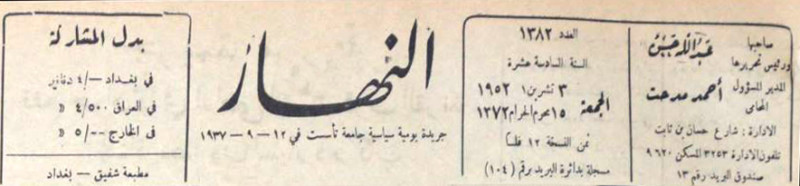 صاحبها
ورئيس تحريرها
عبدالله حسن
المدير المسؤول
المحامي
أحمد مدحت
الادارة : شارع حسان بن ثابت
تلفون الادارة ٣٢٥٣ المسكن ٩٦٢٠
صندوق البريد رقم ١٣
العدد ١٣٨٢
السنة السادسة عشرة
الجمعة
٣ تشرين ١ ١٩٥٢
١٥ محرم الحرام ١٣٧٢
ثمن النسخة ١٢ فلسا
مسجلة بدائرة البريد برقم (١٠٤)
النهار
جريدة يومية سياسية جامعة تأسست في ١٢ - ٩ - ١٩٣٧
بدل المشاركة
في بغداد ٤/- دنانير
في العراق ٤/٥٠٠ »
في الخارج ٥/٠٠ »
مطبعة شفيق - بغداد